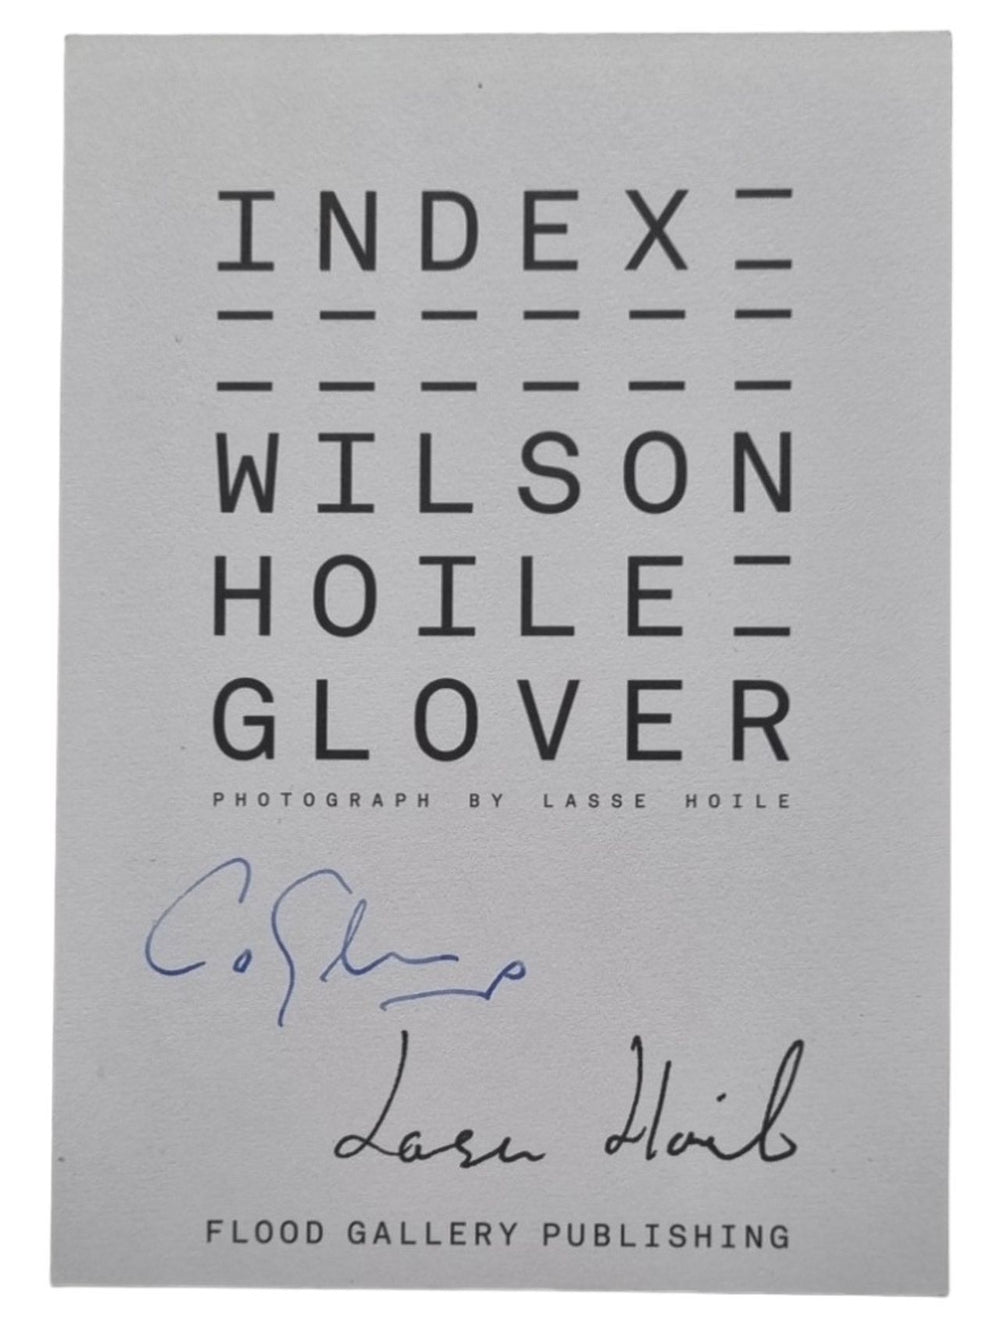 INDEX
WILSON
HOILE
GLOVER
PHOTOGRAPH BY LASSE HOILE
Lasse Hoile
FLOOD GALLERY PUBLISHING